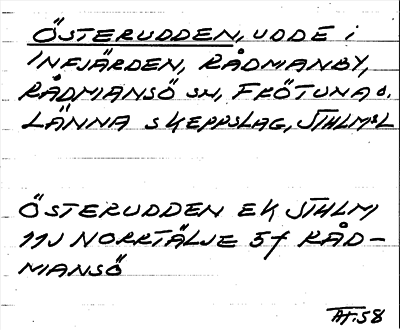 ÖSTERUDDEN, UDDE i
INFJÄRDEN, RÅDMANBY,
RÅDMANSÖ SN, FRÖTUNA o.
LÄNNA SKEPPSLAG, STHLMSL
ÖSTERUDDEN EK STHLM
11J NORRTÄLJE 5f RÅD-
MANSÖ
AF.58